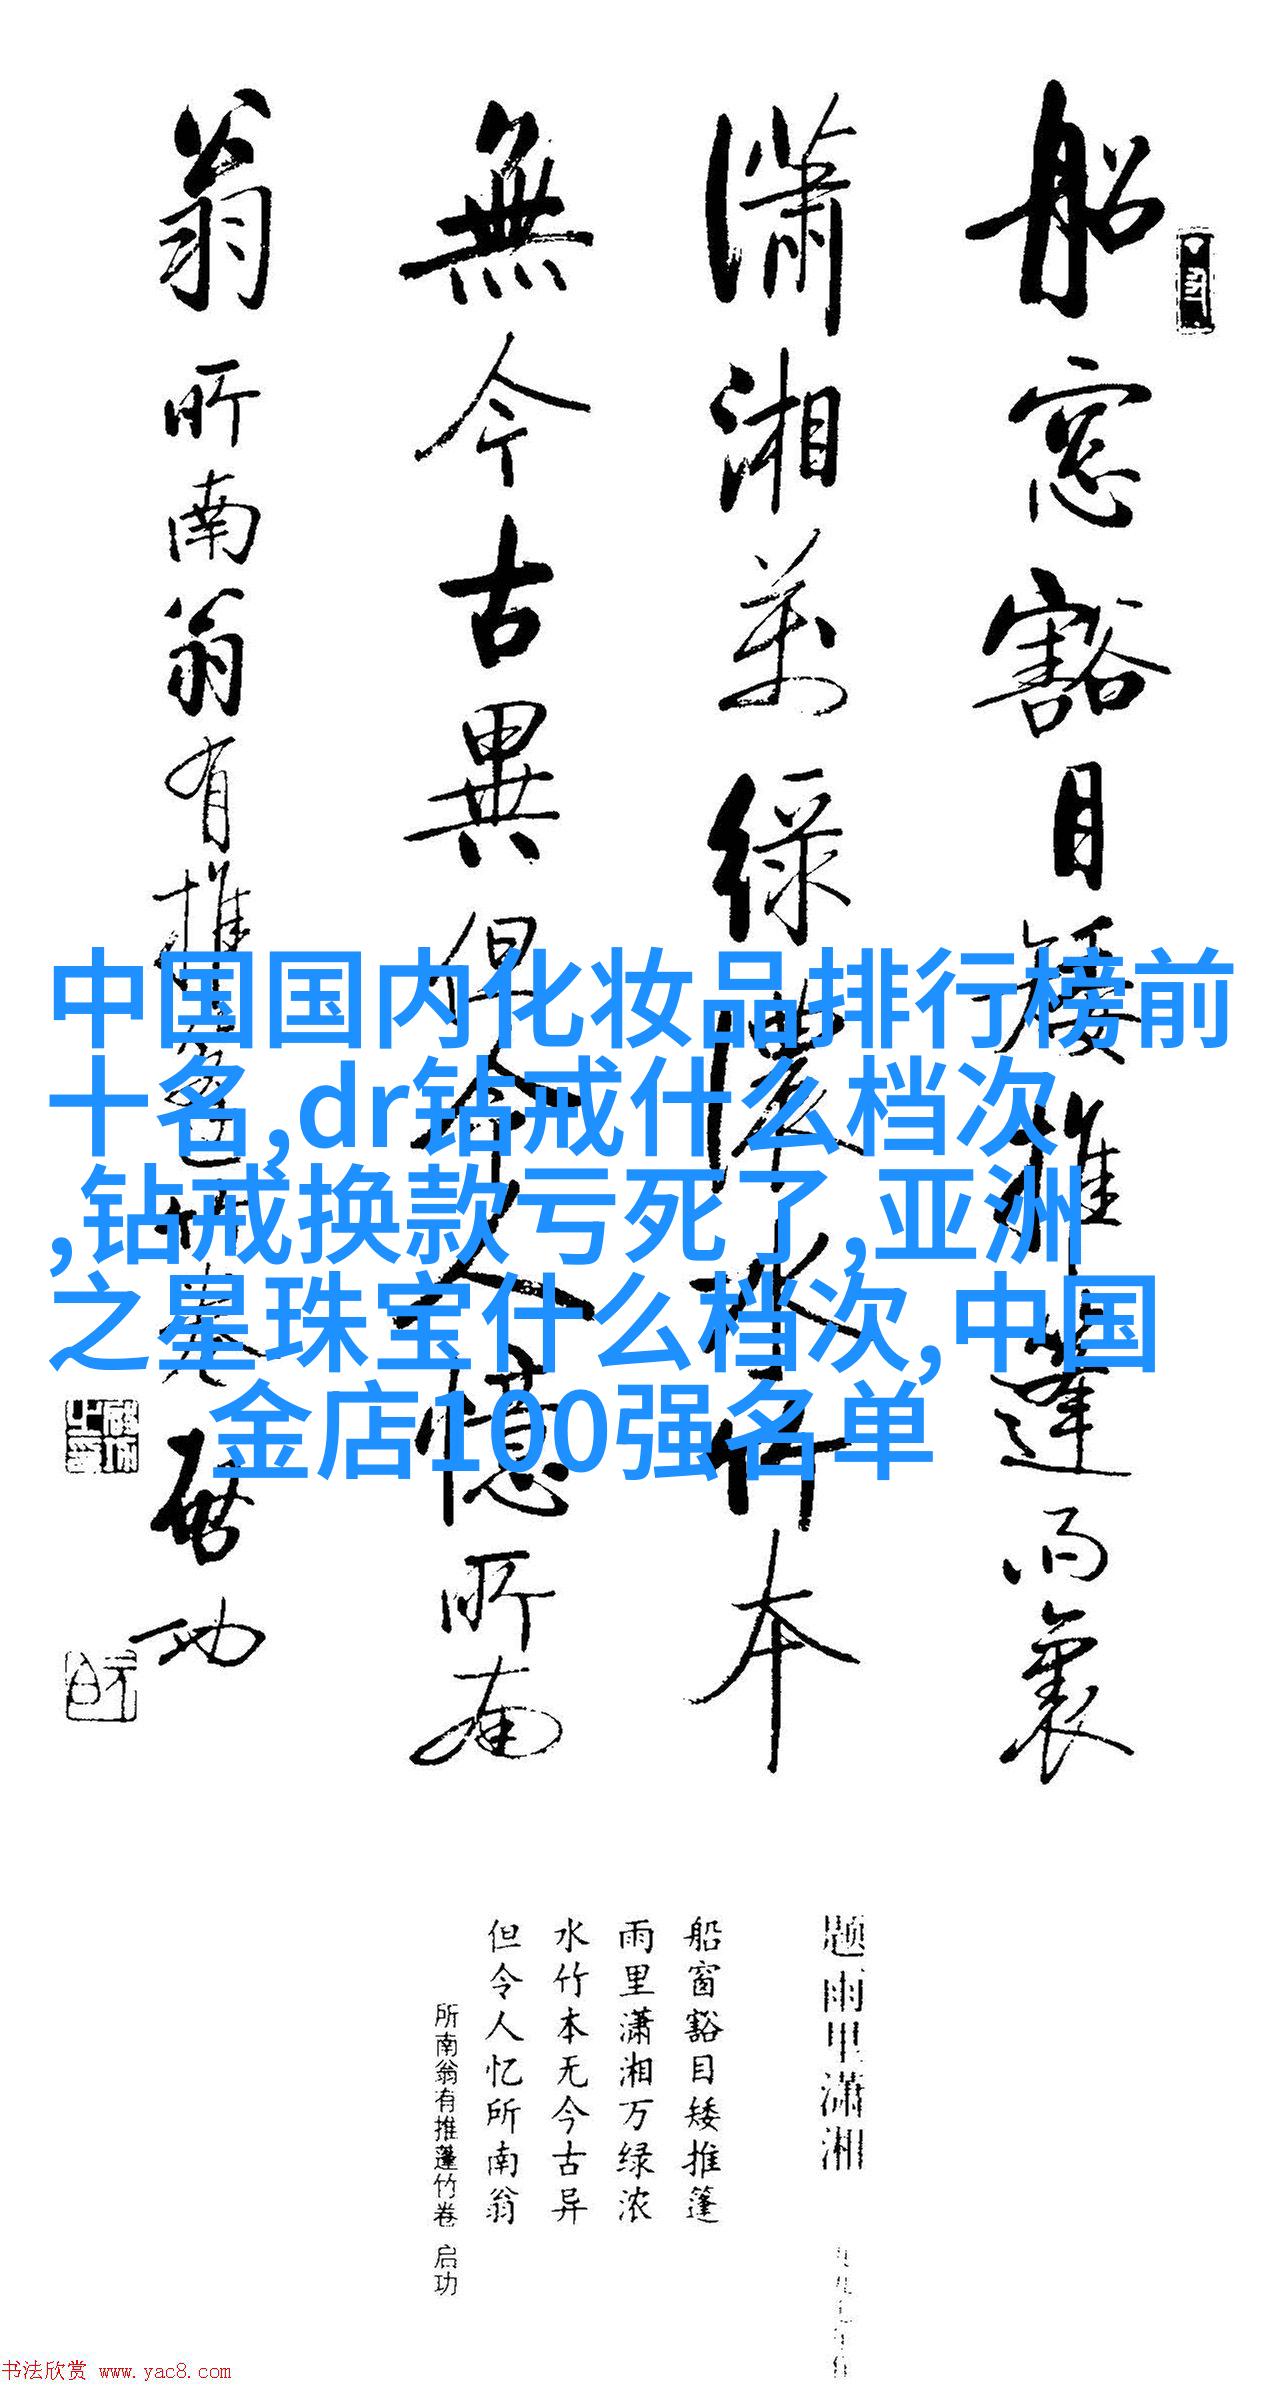 船窓豁目矮推篷雨裏
瀟湘萬緑濃水竹本
無今古異但令人憶所南
翁
所南翁有推篷竹卷 啓功
中国国内化妆品排行榜前
十名,dr钻戒什么档次
,钻戒换款亏死了,亚洲
之星珠宝什么档次,中国
金店100强名单
题雨里潇湘
船窗豁目矮推篷
雨里潇湘万绿浓
水竹本无今古异
但令人忆所南翁
所南翁有推篷竹卷 启功
书法欣赏 www.yac8.com